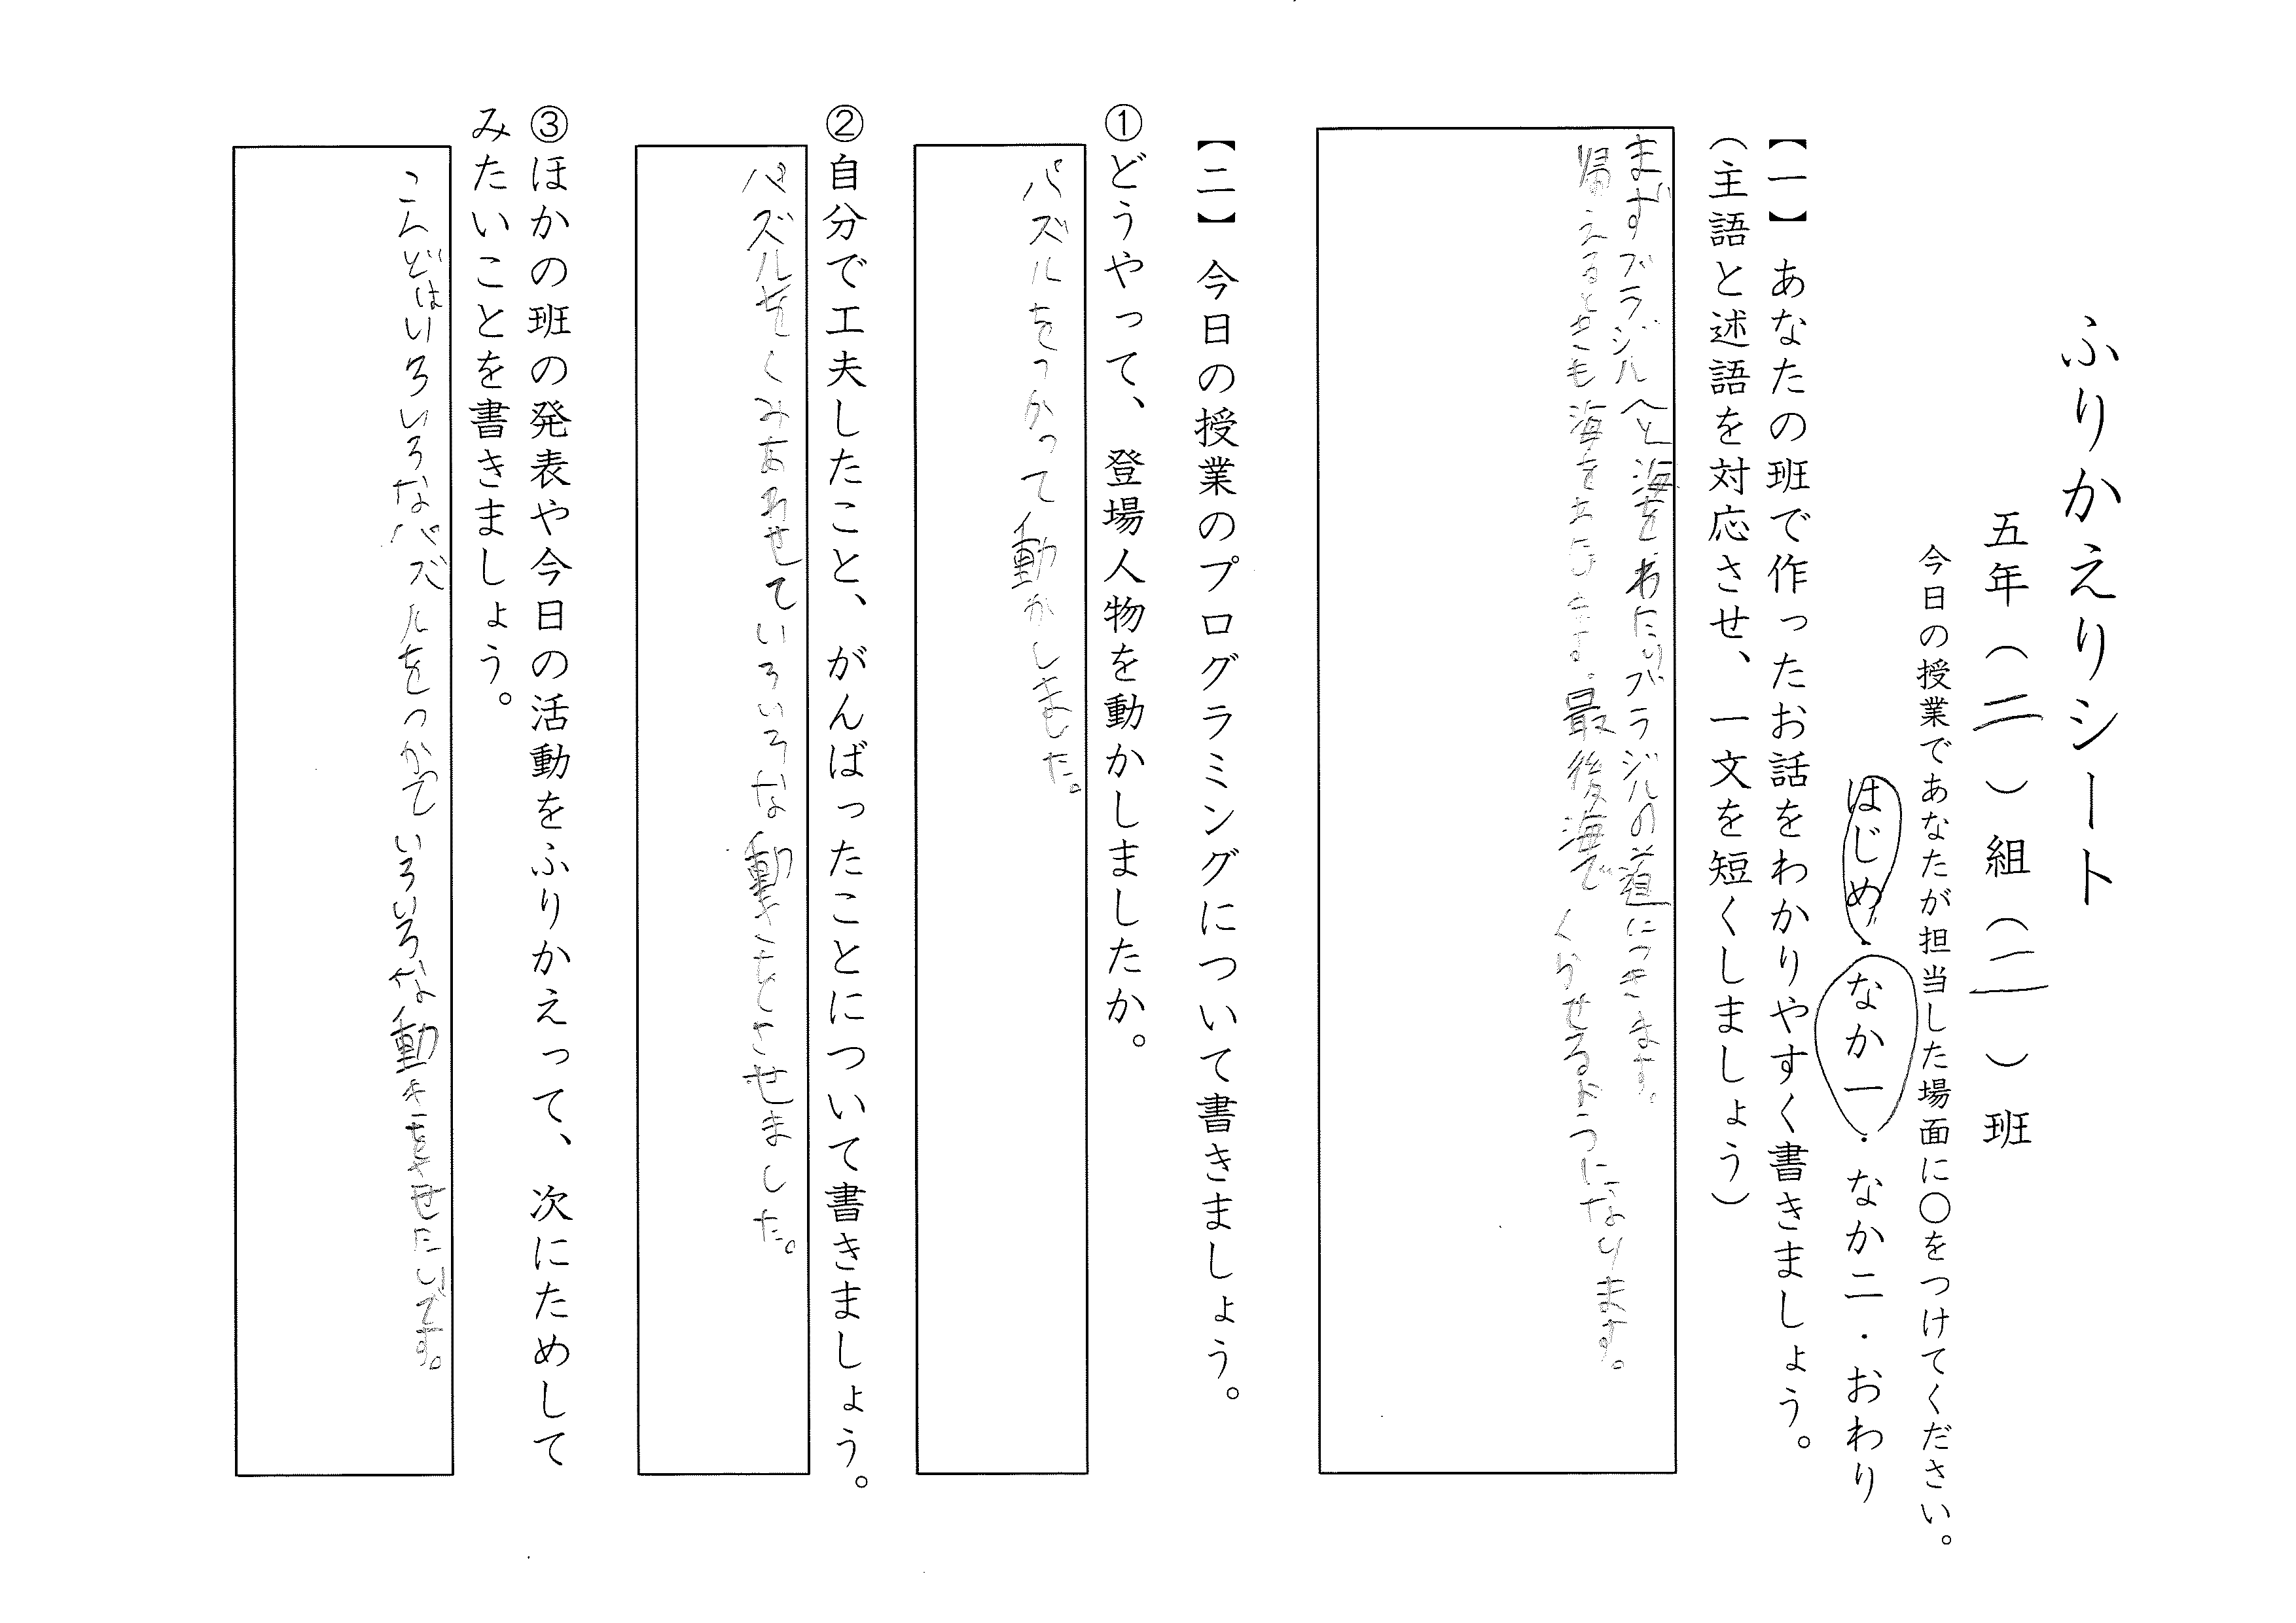 ふりかえりシート
五年(二)組(二)班
今日の授業であなたが担当した場面に○をつけてください。
はじめ・なか一・なか二・おわり
【一】あなたの班で作ったお話をわかりやすく書きましょう。
(主語と述語を対応させ、一文を短くしましょう)
まずブラジルへと海をわたりブラジルの道につきます。
帰えるときも海をわたります。最後海でくらせるようになります。
【二】今日の授業のプログラミングについて書きましょう。
①どうやって、登場人物を動かしましたか。
パズルをつかって動かしました。
②自分で工夫したこと、がんばったことについて書きましょう。
パズルをくみあわせていろいろな動きをさせました。
③ほかの班の発表や今日の活動をふりかえって、次にためして
みたいことを書きましょう。
こんどはいろいろなパズルをつかていろいろな動きをさせたいです。